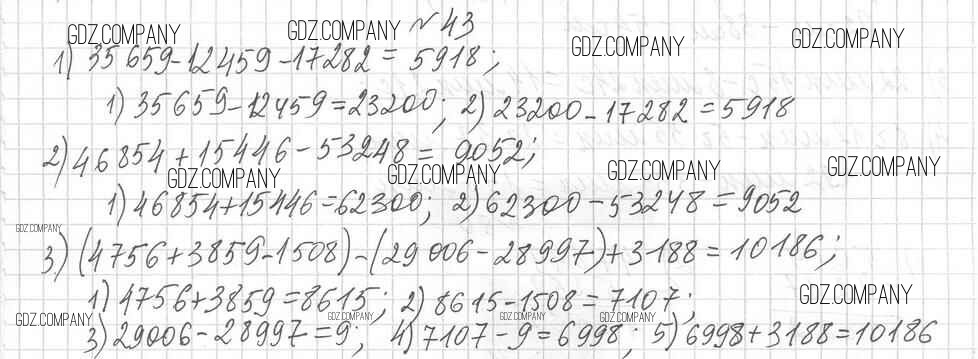 № 43
GDZ.COMPANY GDZ.COMPANY GDZ.COMPANY GDZ.COMPANY
1) 35659-12459-17282=5918;
1) 35659-12459=23200; 2) 23200-17282=5918
2) 46854+15446-53248=9052;
GDZ.COMPANY GDZ.COMPANY GDZ.COMPANY GDZ.COMPANY
1) 46854+15446=62300; 2) 62300-53248=9052
GDZ.COMPANY
3) (4756+3859-1508)-(29006-28997)+3188=10186;
1) 4756+3859=8615; 2) 8615-1508=7107;
GDZ.COMPANY
GDZ.COMPANY GDZ.COMPANY GDZ.COMPANY
3) 29006-28997=9; 4) 7107-9=6998; 5) 6998+3188=10186